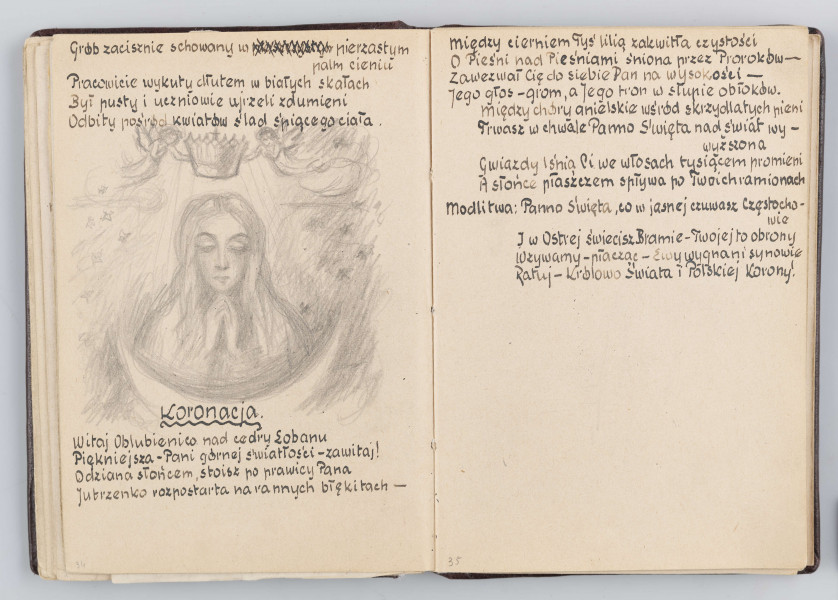 Grób zacisznie schowany w pierzastym
palm cieniu
Pracowicie wykuty dłutem w białych skałach
Był pusty i uczniowie ujrzeli zdumieni
Odbity pośród kwiatów ślad śpiącego ciała.
Koronacja.
Witaj Oblubienico nad cedry Łobanu
Piękniejsza – Pani górnej światłości – zawitaj!
Odziana słońcem, stoisz po prawicy Pana
Jutrzenko rozpostarta na rannych błękitach —
34
między cierniem Tyś lilią zakwitła czystości
O Pieśni nad Pieśniami śniona przez Proroków —
Zawezwał Cię do siebie Pan na wysokości —
Jego głos – grom, a Jego tron w słupie obłoków.
między chóry anielskie wśród skrzydlatych pieni
Trwasz w chwale Panno Święta nad świat wy-
wyższona
Gwiazdy lśnią Ci we włosach tysiącem promieni
A słońce płaszczem spływa po Twoich ramionach
Modlitwa: Panno Święta, co w jasnej czuwasz Częstocho-
wie
I w Ostrej świecisz Bramie – Twojej to obrony
Wzywamy – płacząc – Ewy wygnani synowie
Ratuj – Królowo Świata i Polskiej Korony!
35